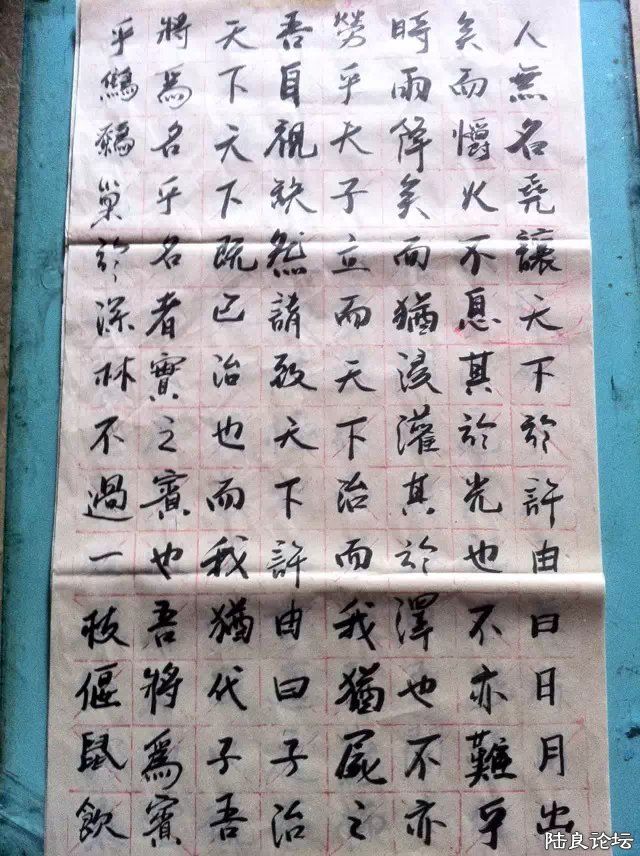 人無名堯讓天下於許由曰日月出
矣而爝火不息其於光也不亦難乎
時雨降矣而猶浸灌其於澤也不亦
勞乎夫子立而天下治而我猶屍之
吾自視缺然請致天下許由曰子治
天下天下既已治也而我猶代子吾
將爲名乎名者實之賓也吾將爲賓
乎鷦鷯巢於深林不過一枝偃鼠飲
陆良论坛